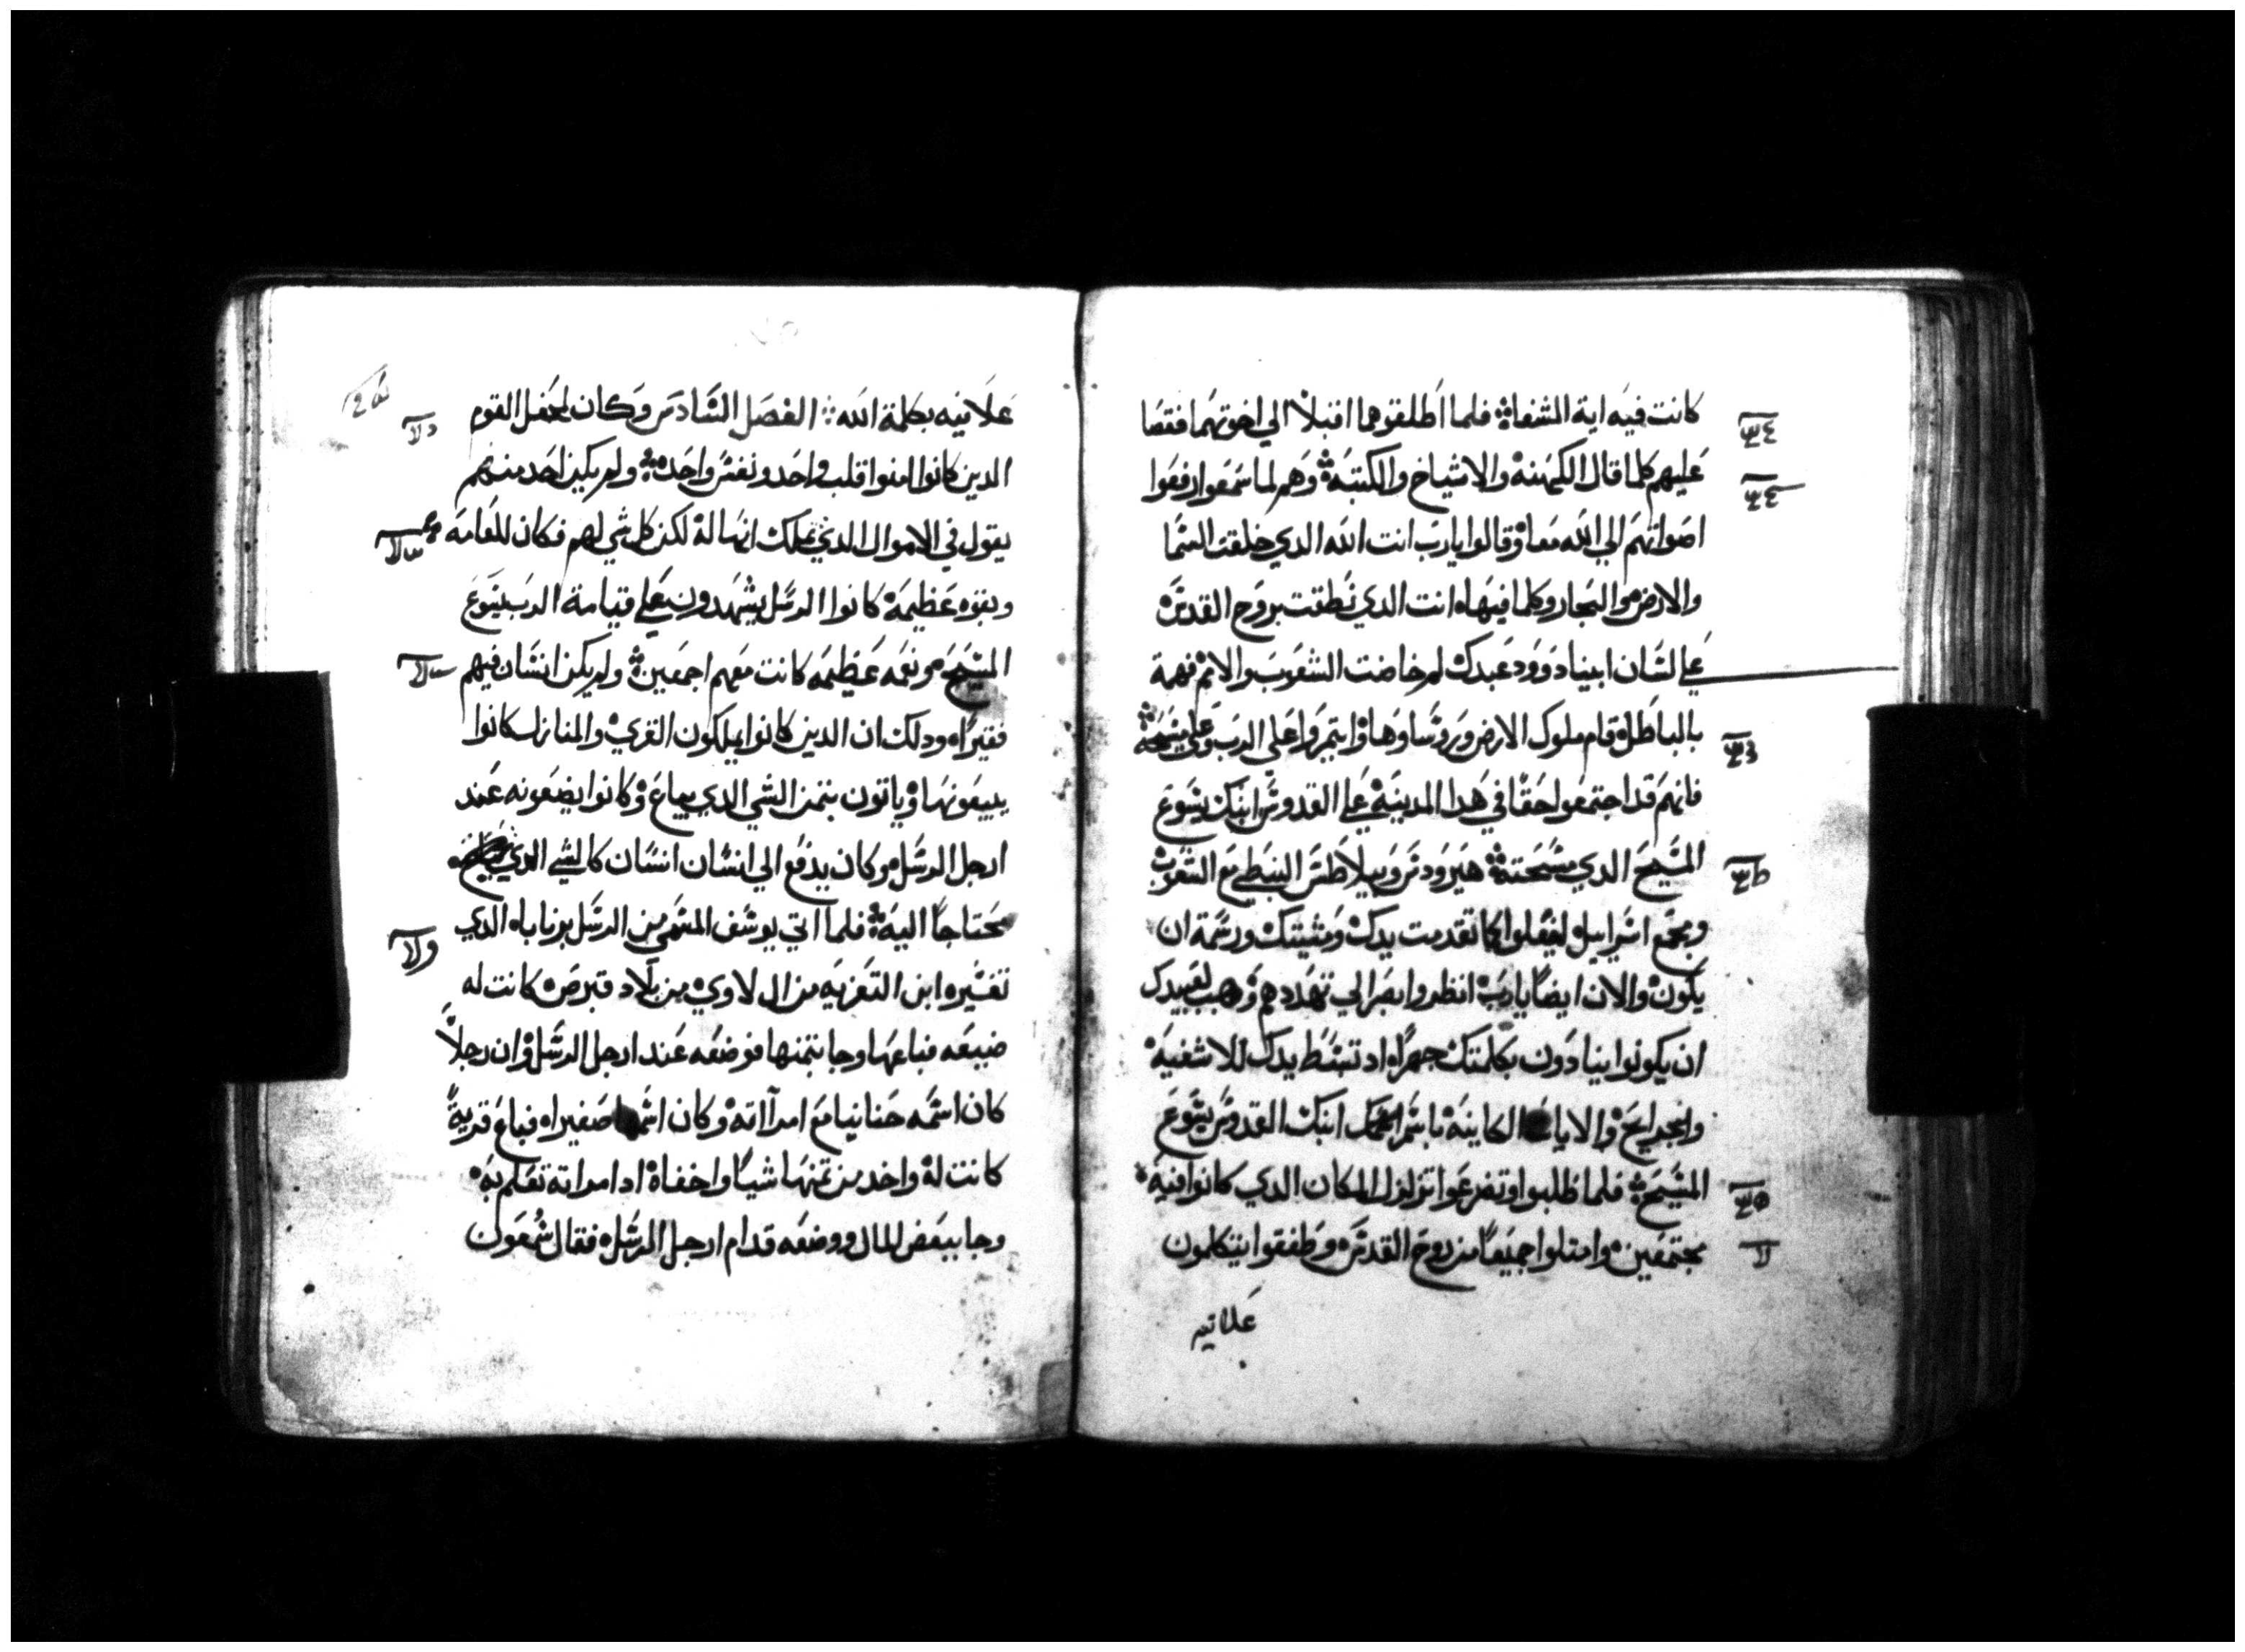 كانت فيه اية الشفاة فلما اطلقوهما اقبلا الي اخوتهما فقصا
عليهم كلما قال الكهنه والاشياخ والكتبة وهم لما سمعوا رفعوا
اصواتهم الي الله معا وقالوا يارب انت الله الدي خلقت السما
والارض والبحار وكلما فيها انت الدي نطقت بروح القدس
علي لسان ابينا دوود عبدك لم خاضت الشعوب والامم نهمة
بالباطل قام ملوك الارض وروساوها وايتمروا علي الرب وعلي مسيحه
فانهم قد اجتمعوا حقا في هدا المدينة علي القدوس ابنك يسوع
المسيح الدي مسحته هيرودس وبيلاطس النبطي مع الشعوب
ومجمع اسراييل ليفعلوا كلما تقدمت يدك ومشيتك ورسمة ان
يكون والان ايضا يارب انظر وابصر الي تهددهم وهب لعبيدك
ان يكونوا ينادون بكلمتك جهرا اد تبسط يدك للاشفية
والجرايح والايات الكاينة باسم ابنك القدوس يسوع
المسيح فلما طلبوا وتضرعوا تزلزل المكان الدي كانوا فيه
مجتمعين وامتلوا جميعا من روح القدس وطفقوا يتكلمون
علانيه
علانيه بكلمة الله الفصل السادس وكان لمحفل القوم
الدين كانوا امنوا قلب واحد ونفس واحده ولم يكن احد منهم
يقول في الاموال الدي يملك انها له لكن كل شي لهم فكان للعامة
وبقوه عظيمة كانوا الرسل يشهدون علي قيامة الرب يسوع
المسيح ونعمه عظيمه كانت معهم اجمعين ولم يكن انسان فيهم
فقيرا ودلك ان الدين كانوا يملكون القري والمنازل كانوا
يبيعونها وياتون بتمن الشي الدي يباع وكانوا يضعونه عند
ارجل الرسل وكان يدفع الي انسان انسان كالشي الدي
محتاجا اليه فلما اتي يوسف المسمي من الرسل برنابا الدي
تفسيره ابن التعزيه من ال لاوي من بلاد قبرص كانت له
ضيعه فباعها وجا بتمنها فوضعه عند ارجل الرسل وان رجلا
كان اسمه حنانيا مع امراته وكان اسمها صفيرا فباع قرية
كانت له واخد من تمنها شيا واخفاه اد امراته تعلم به
وجا ببعض المال ووضعه قدام ارجل الرسل فقال شمعون